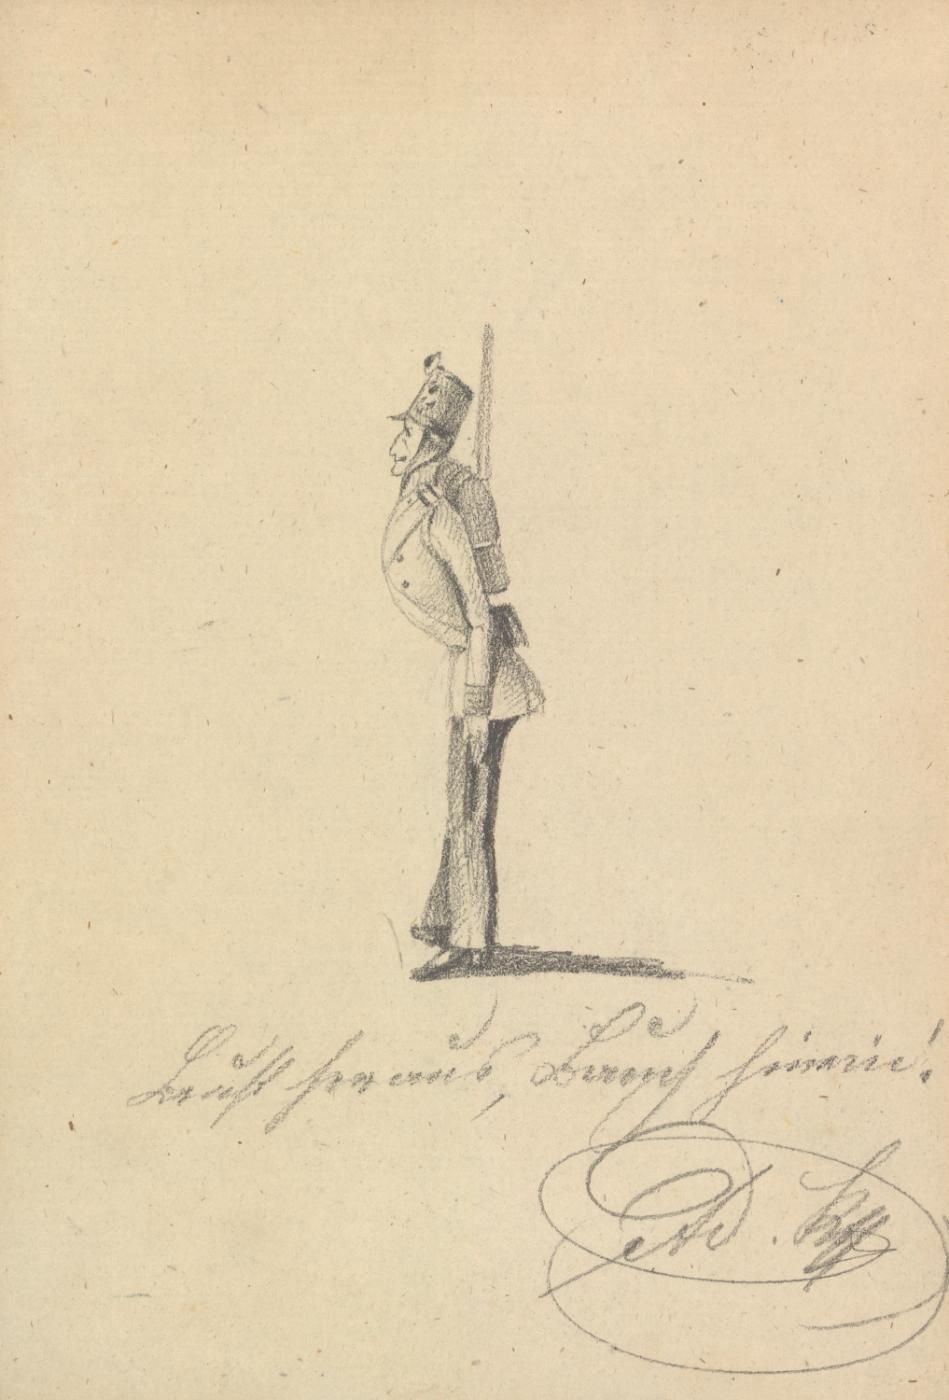 Brust heraus, Bauch hinein!
Ad.